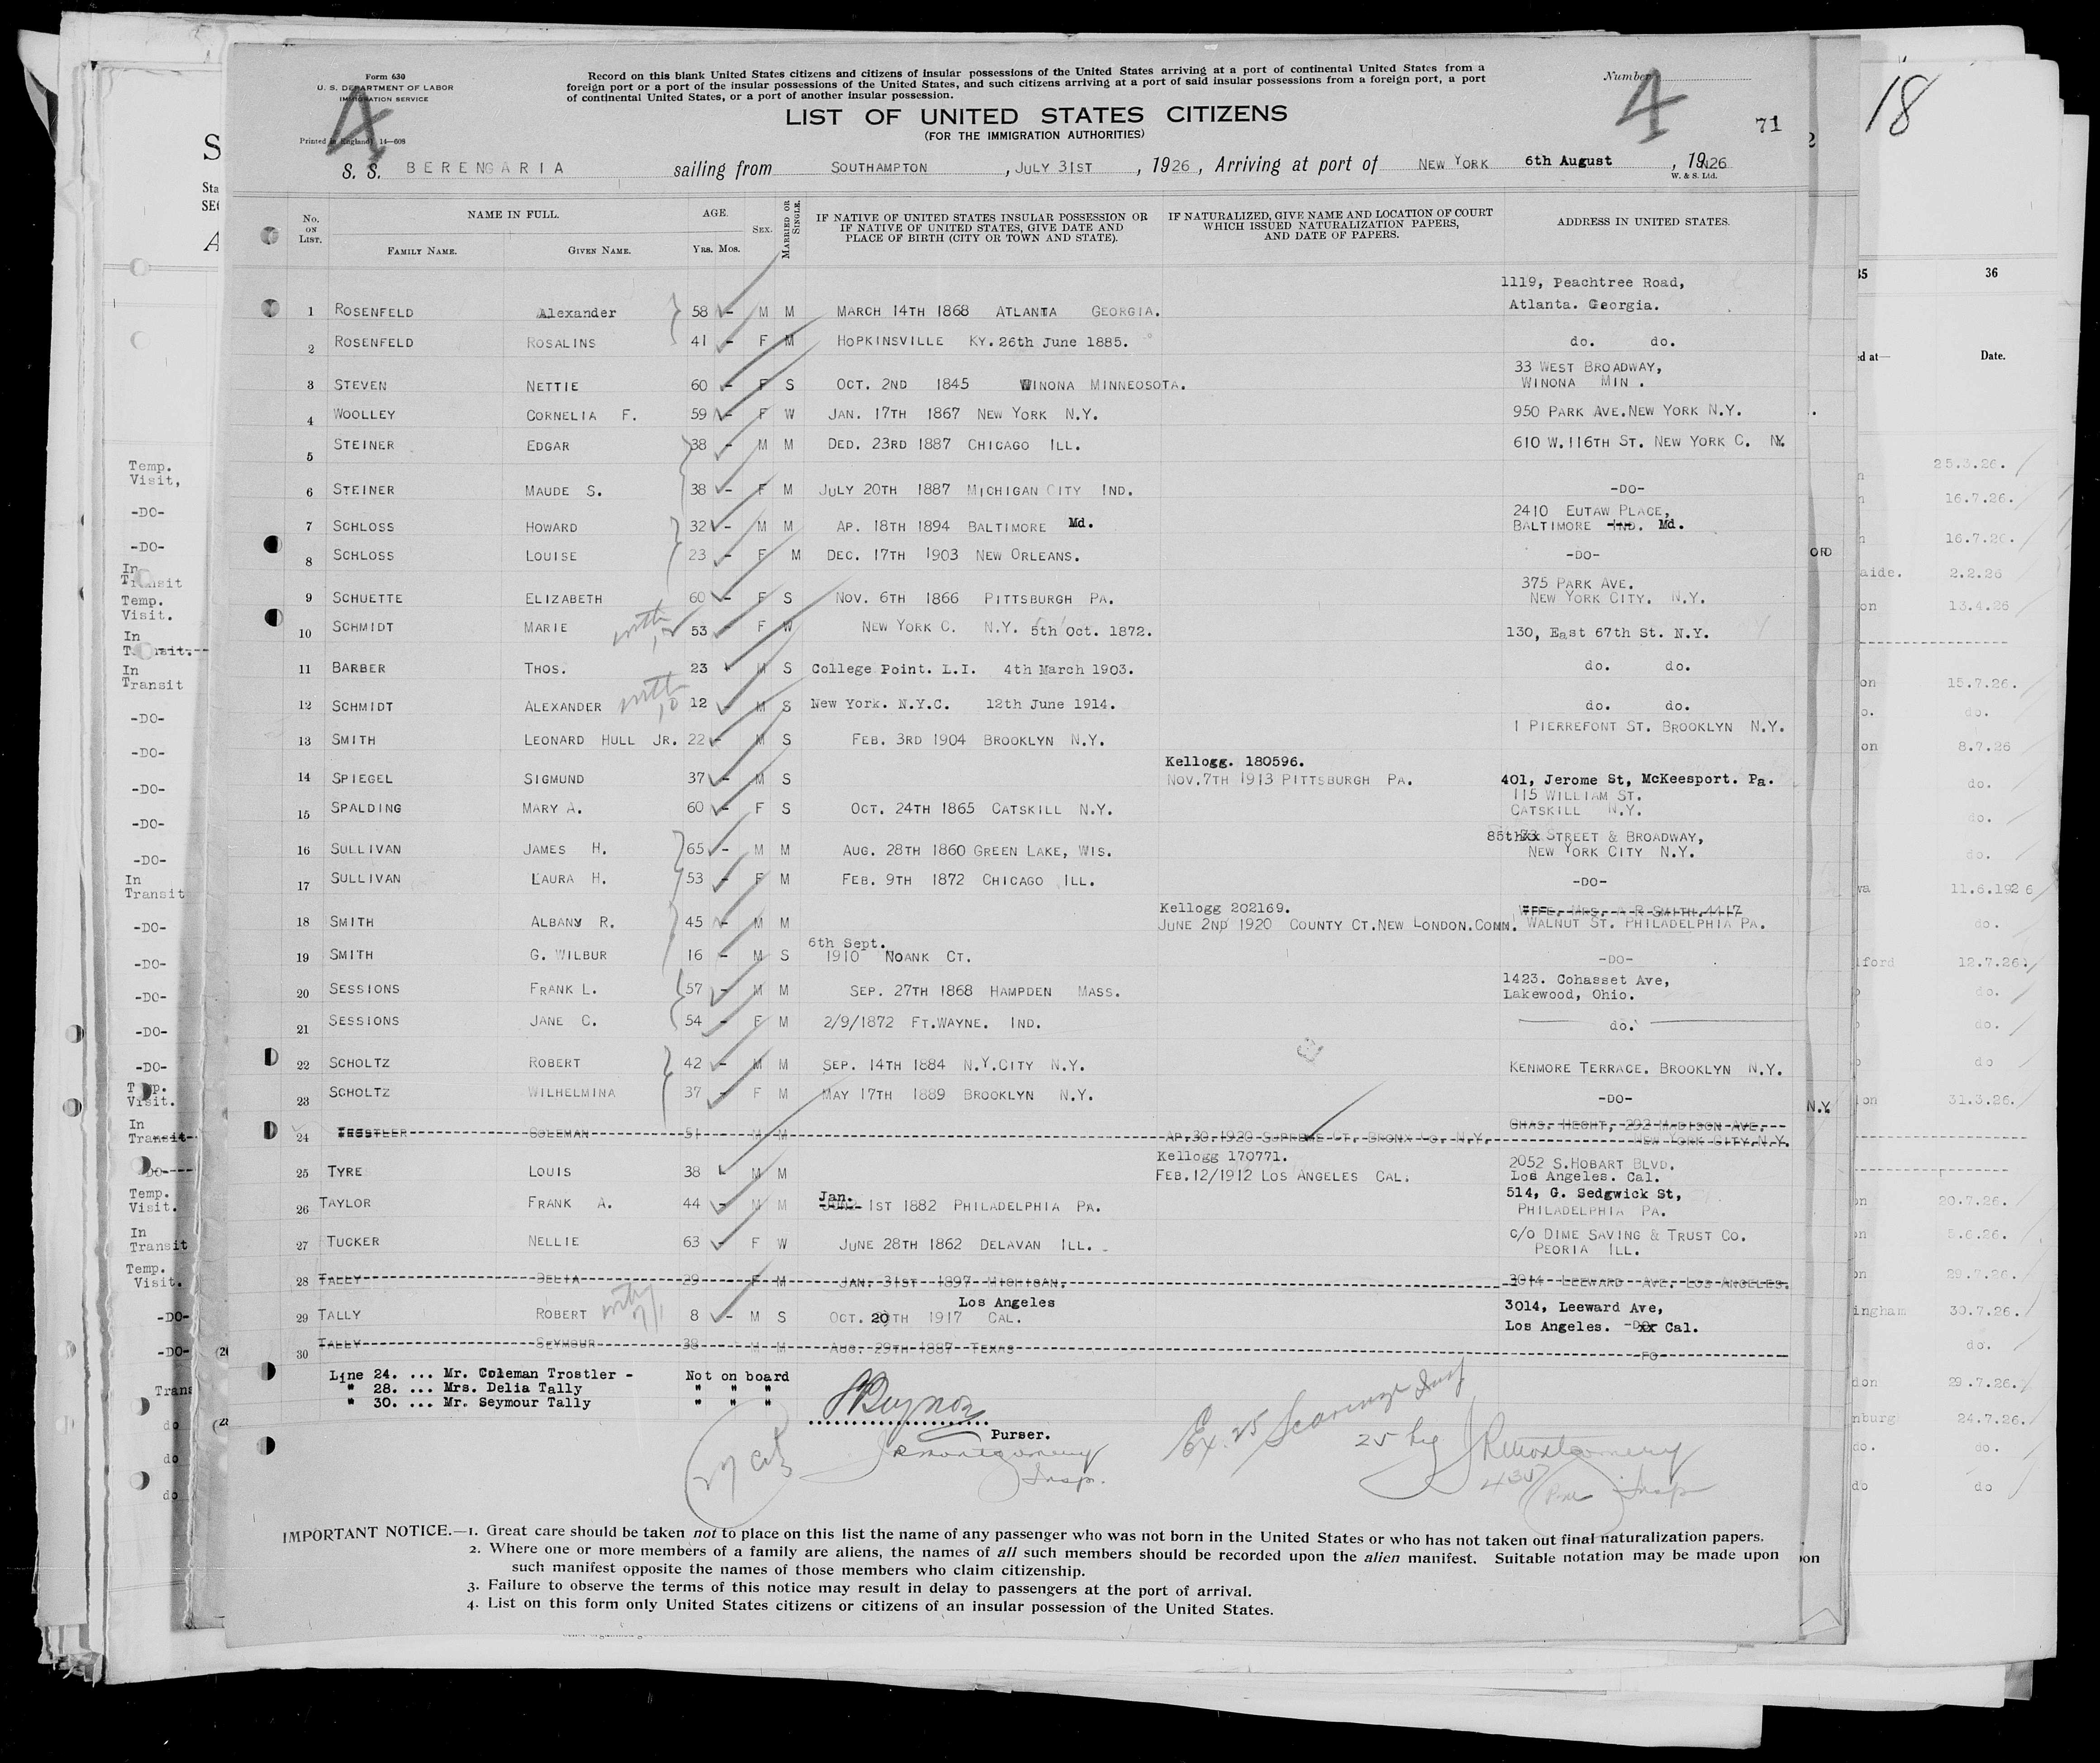 Form 630
U. S. DEPARTMENT OF LABOR
IMMIGRATION SERVICE
Printed in England 14—608
Record on this blank United States citizens and citizens of insular possessions of the United States arriving at a port of continental United States from a
foreign port or a port of the insular possessions of the United States, and such citizens arriving at a port of said insular possessions from a foreign port, a port
of continental United States, or a port of another insular possession.
Number
4
4
71
18
LIST OF UNITED STATES CITIZENS
(FOR THE IMMIGRATION AUTHORITIES)
S. S. BERENGARIA sailing from SOUTHAMPTON, JULY 31ST, 1926, Arriving at port of NEW YORK 6th August, 1926
W. & S. Ltd.
No. ON LIST. NAME IN FULL. FAMILY NAME. GIVEN NAME. AGE. Yrs. Mos. SEX. MARRIED OR SINGLE. IF NATIVE OF UNITED STATES INSULAR POSSESSION OR IF NATIVE OF UNITED STATES, GIVE DATE AND PLACE OF BIRTH (CITY OR TOWN AND STATE). IF NATURALIZED, GIVE NAME AND LOCATION OF COURT WHICH ISSUED NATURALIZATION PAPERS, AND DATE OF PAPERS. ADDRESS IN UNITED STATES.
1 ROSENFELD Alexander 58 - M M MARCH 14TH 1868 ATLANTA GEORGIA. 1119, Peachtree Road, Atlanta. Georgia.
2 ROSENFELD ROSALINS 41 - F M HOPKINSVILLE KY. 26th June 1885. do. do.
3 STEVEN NETTIE 60 - F S OCT. 2ND 1845 WINONA MINNEOSOTA. 33 WEST BROADWAY, WINONA MIN.
4 WOOLLEY CORNELIA F. 59 - F W JAN. 17TH 1867 NEW YORK N.Y. 950 PARK AVE. NEW YORK N.Y.
5 STEINER EDGAR 38 - M M DED. 23RD 1887 CHICAGO ILL. 610 W. 116TH ST. NEW YORK C. NY.
6 STEINER MAUDE S. 38 - F M JULY 20TH 1887 MICHIGAN CITY IND. -DO-
7 SCHLOSS HOWARD 32 - M M AP. 18TH 1894 BALTIMORE Md. 2410 EUTAW PLACE, BALTIMORE IND. Md.
8 SCHLOSS LOUISE 23 - F M DEC. 17TH 1903 NEW ORLEANS. -DO-
9 SCHUETTE ELIZABETH 60 - F S NOV. 6TH 1866 PITTSBURGH PA. 375 PARK AVE. NEW YORK CITY. N.Y.
10 SCHMIDT MARIE with 12 53 - F W NEW YORK C. N.Y. 5th Oct. 1872. 130, East 67th St. N.Y.
11 BARBER THOS. 23 M S College Point. L.I. 4th March 1903. do. do.
12 SCHMIDT ALEXANDER with 10 12 - M S New York. N.Y.C. 12th June 1914. do. do.
13 SMITH LEONARD HULL JR. 22 - M S FEB. 3RD 1904 BROOKLYN N.Y. 1 PIERREFONT ST. BROOKLYN N.Y.
14 SPIEGEL SIGMUND 37 - M S Kellogg. 180596. NOV. 7TH 1913 PITTSBURGH PA. 401, Jerome St, McKeesport. Pa.
15 SPALDING MARY A. 60 - F S OCT. 24TH 1865 CATSKILL N.Y. 115 WILLIAM ST. CATSKILL N.Y.
16 SULLIVAN JAMES H. 65 - M M AUG. 28TH 1860 GREEN LAKE, WIS. 85th STREET & BROADWAY, NEW YORK CITY N.Y.
17 SULLIVAN LAURA H. 53 - F M FEB. 9TH 1872 CHICAGO ILL. -DO-
18 SMITH ALBANY R. 45 - M M Kellogg 202169. JUNE 2ND 1920 COUNTY CT. NEW LONDON. CONN. WIFE, MRS. A R SMITH, 4417 WALNUT ST. PHILADELPHIA PA.
19 SMITH G. WILBUR 16 - M S 6th Sept. 1910 NOANK CT. -DO-
20 SESSIONS FRANK L. 57 - M M SEP. 27TH 1868 HAMPDEN MASS. 1423. Cohasset Ave, Lakewood, Ohio.
21 SESSIONS JANE C. 54 - F M 2/9/1872 FT. WAYNE. IND. do.
22 SCHOLTZ ROBERT 42 - M M SEP. 14TH 1884 N.Y. CITY N.Y. KENMORE TERRACE. BROOKLYN N.Y.
23 SCHOLTZ WILHELMINA 37 - F M MAY 17TH 1889 BROOKLYN N.Y. -DO-
24 TROSTLER COLEMAN 51 - M M AP. 30. 1920 SUPREME CT. BRONX CO. N.Y. CHAS. HECHT, 292 MADISON AVE, NEW YORK CITY N.Y.
25 TYRE LOUIS 38 M M Kellogg 170771. FEB. 12/1912 LOS ANGELES CAL. 2052 S. HOBART BLVD. Los Angeles. Cal.
26 TAYLOR FRANK A. 44 - M M Jan. 1ST 1882 PHILADELPHIA PA. 514, G. Sedgwick St, PHILADELPHIA PA.
27 TUCKER NELLIE 63 - F W JUNE 28TH 1862 DELAVAN ILL. C/O DIME SAVING & TRUST CO. PEORIA ILL.
28 TALLY DELIA 29 F M JAN. 31ST 1897 MICHIGAN. 3014 LEEWARD AVE. LOS ANGELES.
29 TALLY ROBERT 8 - M S OCT. 20TH 1917 Los Angeles CAL. 3014, Leeward Ave, Los Angeles. -DO- Cal.
30 TALLY SEYMOUR 38 - M M AUG. 29TH 1887 TEXAS
Line 24. ... Mr. Coleman Trostler - Not on board
" 28. ... Mrs. Delia Tally " " "
" 30. ... Mr. Seymour Tally " " "
Purser.
27 cit
JRMontgomery
Insp.
Ex. 25
JRMontgomery
Insp
IMPORTANT NOTICE.—1. Great care should be taken not to place on this list the name of any passenger who was not born in the United States or who has not taken out final naturalization papers.
2. Where one or more members of a family are aliens, the names of all such members should be recorded upon the alien manifest. Suitable notation may be made upon
such manifest opposite the names of those members who claim citizenship.
3. Failure to observe the terms of this notice may result in delay to passengers at the port of arrival.
4. List on this form only United States citizens or citizens of an insular possession of the United States.
S
Sta
A
Temp.
Visit,
-DO-
-DO-
In
Transit
Temp.
Visit.
In
Transit
In
Transit
-DO-
-DO-
-DO-
-DO-
-DO-
In
Transit
-DO-
-DO-
-DO-
-DO-
-DO-
Temp.
Visit.
In
Transit
-DO-
Temp.
Visit.
In
Transit
Temp.
Visit.
-DO-
-DO-
Trans
do
do
do
ORD
N.Y.
35 36
ed at— Date.
25.3.26.
16.7.26.
16.7.26.
aide. 2.2.26
on 13.4.26
on 15.7.26.
do.
on 8.7.26
do.
do.
do.
va 11.6.1926
do.
lford 12.7.26.
do.
do.
do
ion 31.3.26.
on 20.7.26.
on 5.6.26.
on 29.7.26.
ingham 30.7.26.
do.
don 29.7.26.
nburg 24.7.26.
do. do.
do do